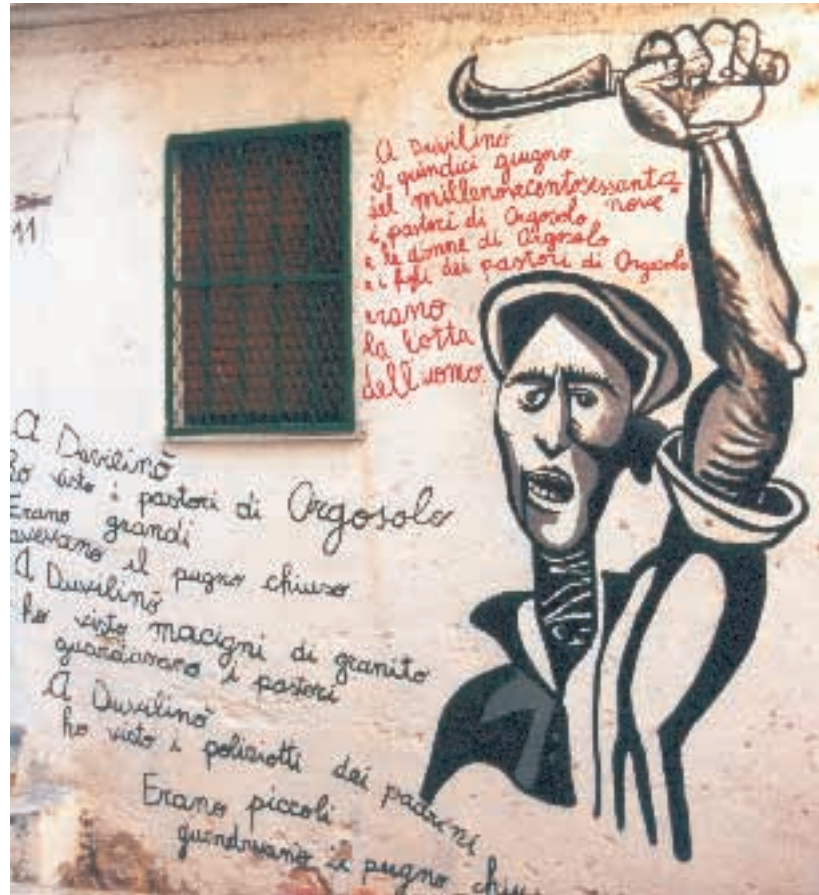 11
A Duvilinò
il quindici giugno
del millenovecentosessanta
nove
i pastori di Orgosolo
e le donne di Orgosolo
e i figli dei pastori di Orgosolo
erano
la lotta
dell'uomo.
A Duvilinò
ho visto i pastori di Orgosolo
Erano grandi
avevano il pugno chiuso
A Duvilinò
ho visto macigni di granito
guardavano i pastori
A Duvilinò
ho visto i poliziotti dei padroni
Erano piccoli
guardavano il pugno